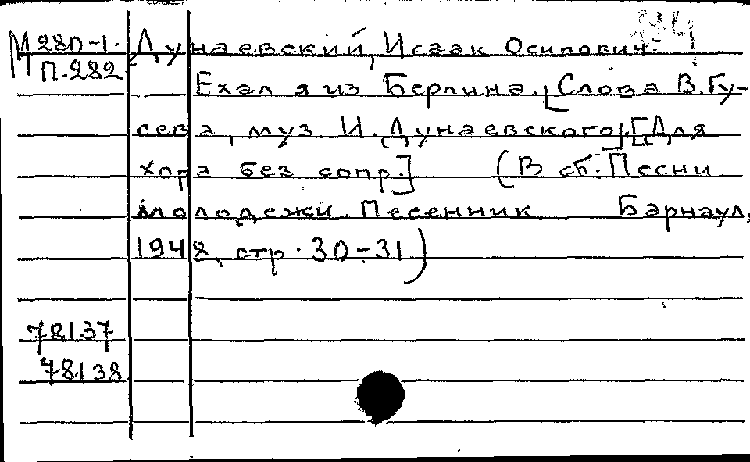 М280-1. Дунаевский, Исаак Осипович.
П.282
Ехал я из Берлина. [Слова В. Гу-
сева, муз. И. Дунаевского]. [Для
хора без сопр.] (В сб.: Песни
молодежи. Песенник. Барнаул,
1948, стр. 30-31)
78137
78138